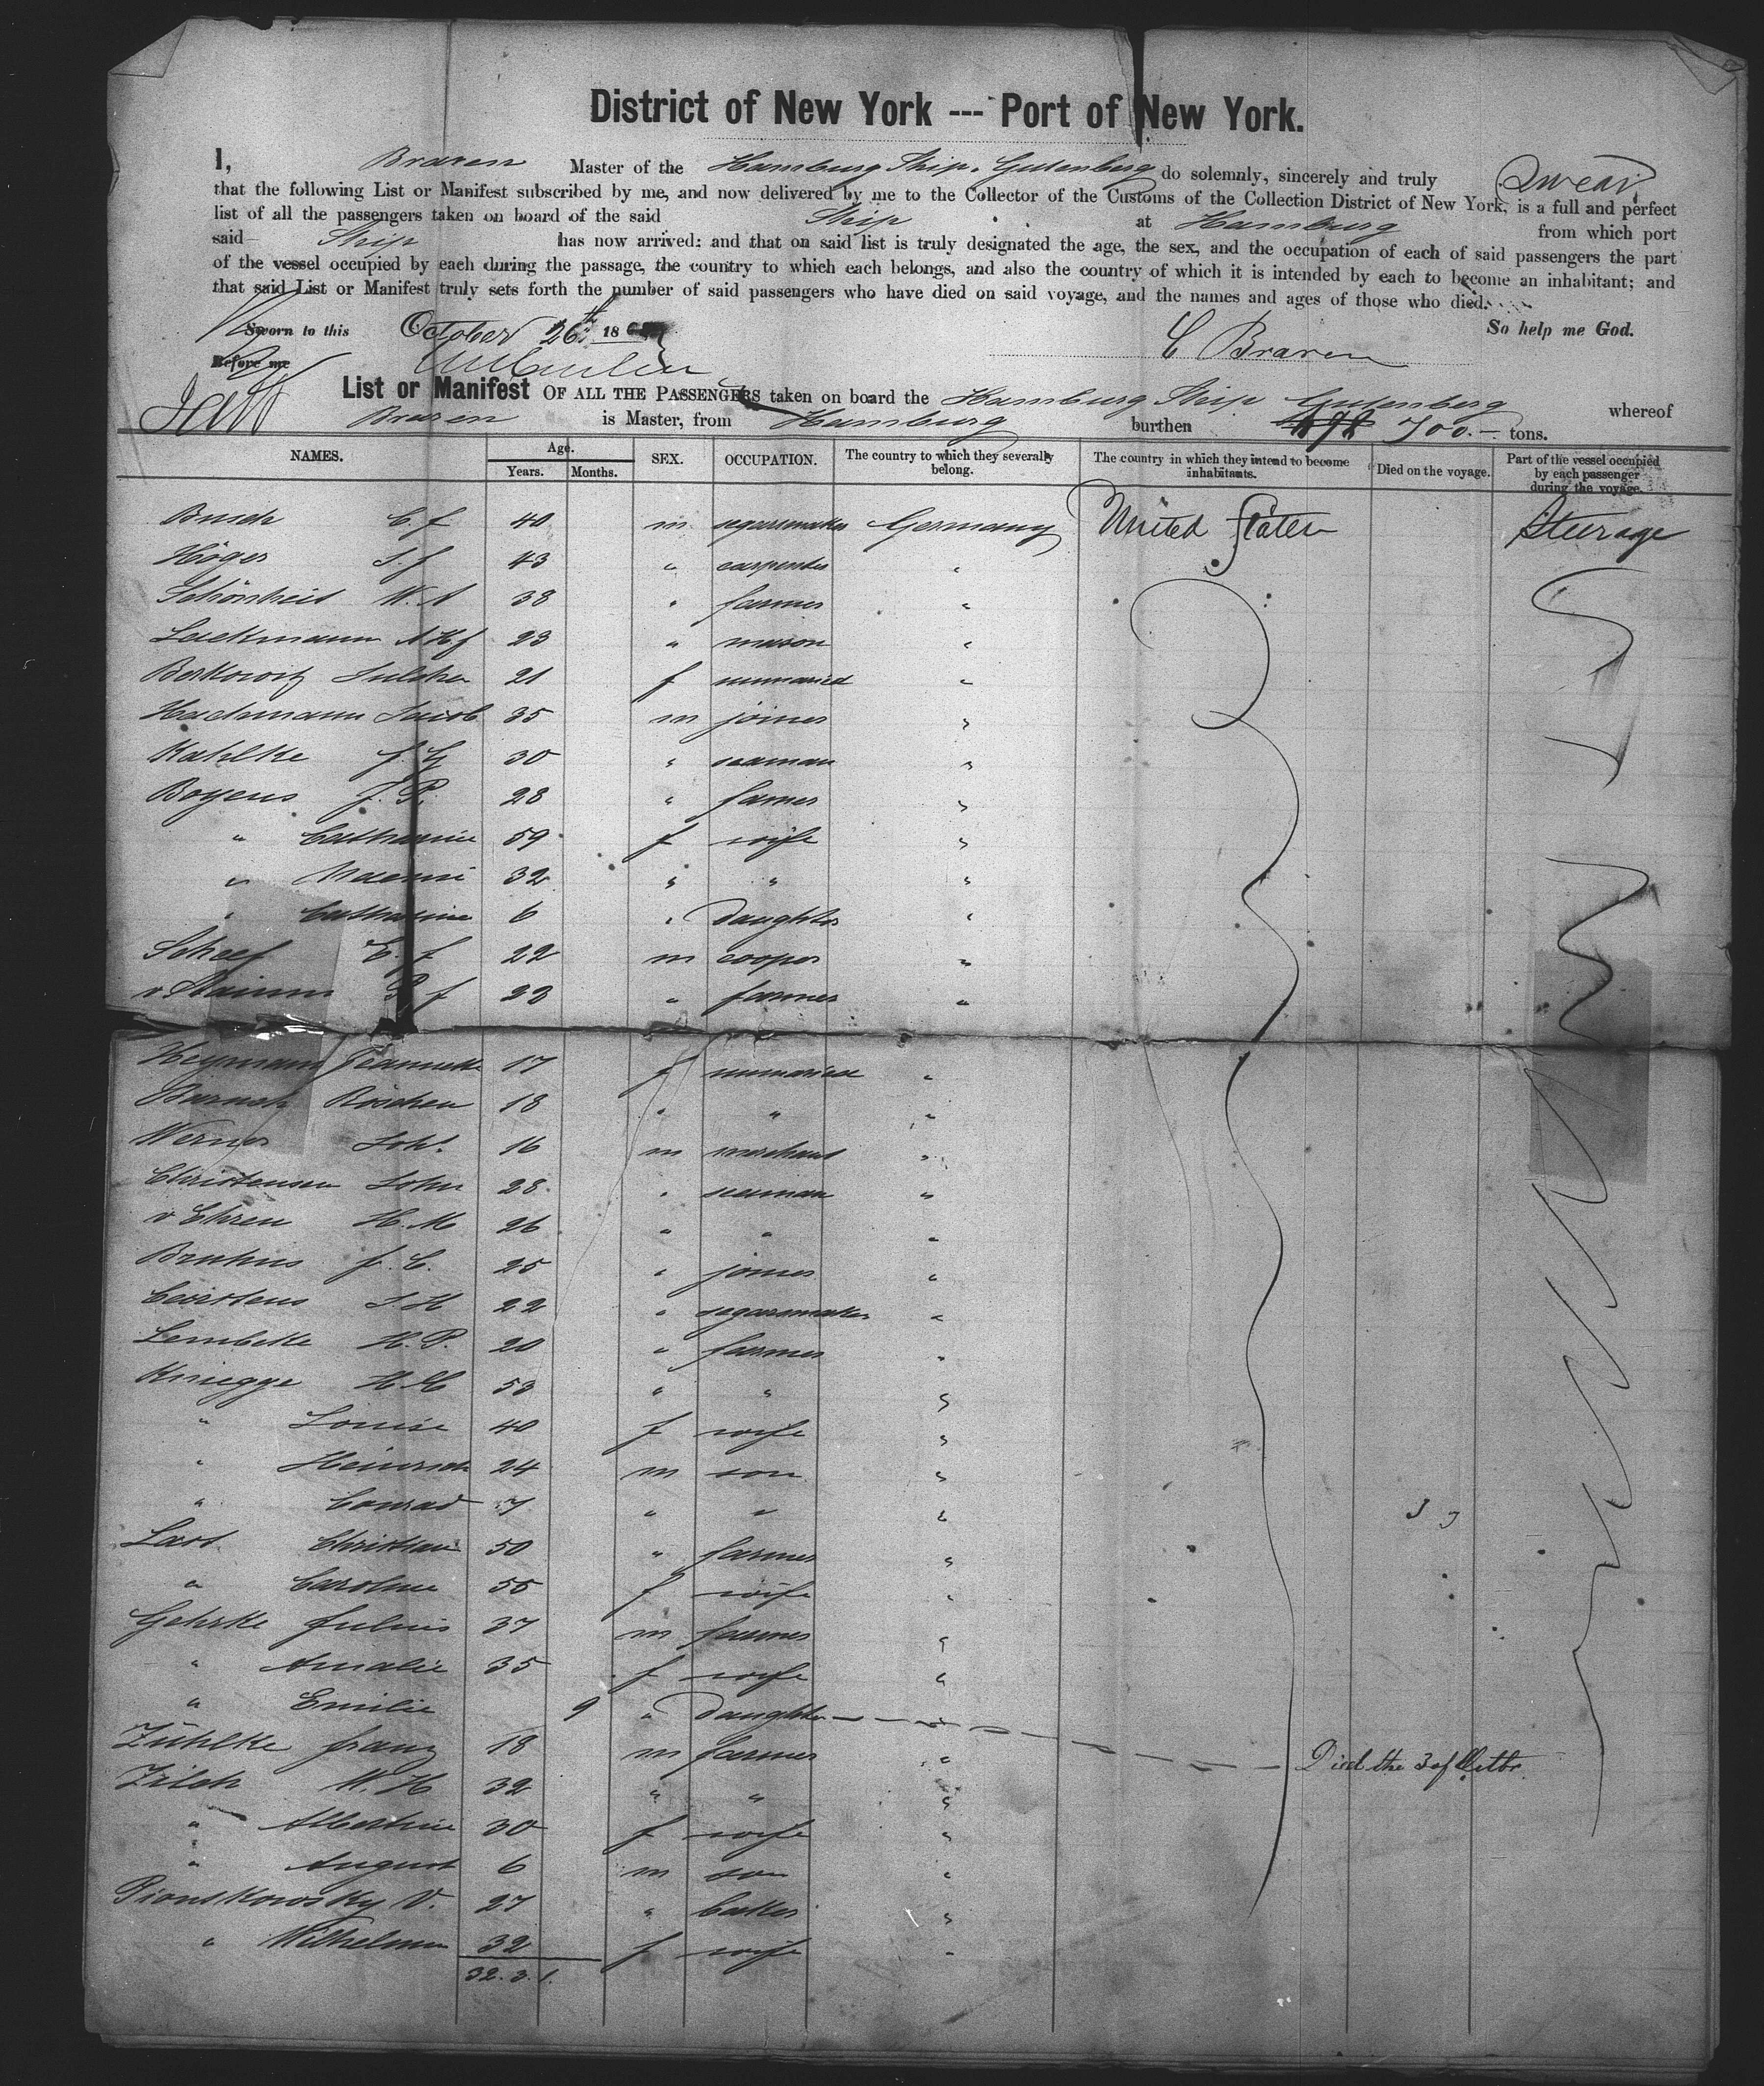 District of New York --- Port of New York.
I, Braren Master of the Hamburg Ship. Gutenberg do solemnly, sincerely and truly Swear
that the following List or Manifest subscribed by me, and now delivered by me to the Collector of the Customs of the Collection District of New York, is a full and perfect
list of all the passengers taken on board of the said Ship at Hamburg from which port
said Ship has now arrived: and that on said list is truly designated the age, the sex, and the occupation of each of said passengers the part
of the vessel occupied by each during the passage, the country to which each belongs, and also the country of which it is intended by each to become an inhabitant; and
that said List or Manifest truly sets forth the number of said passengers who have died on said voyage, and the names and ages of those who died.
Sworn to this October 26th 18 So help me God.
C Braren
Before me
List or Manifest OF ALL THE PASSENGERS taken on board the Hamburg Ship Gutenberg whereof
Braren is Master, from Hamburg burthen 700.- tons.
NAMES. Age. Years. Months. SEX. OCCUPATION. The country to which they severally belong. The country in which they intend to become inhabitants. Died on the voyage. Part of the vessel occupied by each passenger during the voyage.
Busch C. f 40 m segarsmaker Germany United States Steerage
Höger J. f 43 " carpenter "
Schönheit W. A 38 " farmer "
Lackmann A H f 23 " mason "
Berkowitz Julchen 21 f unmaried "
Hachmann Jacob 35 m joiner "
Kahlke f. G 30 " seaman "
Boyens J. P. 28 " famer "
" Catharine 59 f wife "
" 32 " " "
" Catharine 6 " daughter "
Scheef E. f 22 m cooper "
v f 23 " farmer "
Heymann Jeannette 17 f unmaried "
Röschen 18 " " "
Werner Joh. 16 m merchant "
Christensen John 28 " seaman "
v Ehren H. M 26 " " "
Bruhns f. C. 25 " joiner "
Carstens J. H 22 " segarsmaker "
Lembcke H. P. 20 " farmer "
Knigge H H 53 " " "
" Louise 40 f wife "
" Heinrich 24 m son "
" Conrad 7 " " "
Last Christian 50 " farmer "
" Caroline 55 f wife "
Gehrke Julius 37 m farmer "
" Amalie 35 f wife "
" Emilie 9 " daughter " Died the 3 of Octbr.
Zühlke Franz 18 m farmer "
Zilch W. H 32 " " "
" Albertine 30 f wife "
" August 6 m son "
Pionskowsky V. 27 " baker "
" Wilhelmine 32 f wife "
32. 3. 1.